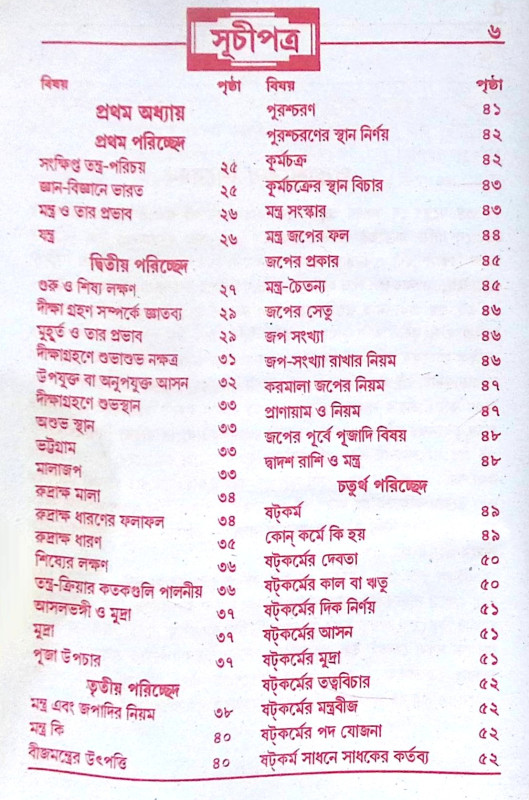 সূচীপত্র
৬
বিষয় পৃষ্ঠা
প্রথম অধ্যায়
প্রথম পরিচ্ছেদ
সংক্ষিপ্ত তন্ত্র-পরিচয় ২৫
জ্ঞান-বিজ্ঞানে ভারত ২৫
মন্ত্র ও তার প্রভাব ২৬
যন্ত্র ২৬
দ্বিতীয় পরিচ্ছেদ
গুরু ও শিষ্য লক্ষণ ২৭
দীক্ষা গ্রহণ সম্পর্কে জ্ঞাতব্য ২৯
মুহূর্ত ও তার প্রভাব ২৯
দীক্ষাগ্রহণে শুভাশুভ নক্ষত্র ৩১
উপযুক্ত বা অনুপযুক্ত আসন ৩২
দীক্ষাগ্রহণে শুভস্থান ৩৩
অশুভ স্থান ৩৩
ভট্টগ্রাম ৩৩
মালাজপ ৩৩
রুদ্রাক্ষ মালা ৩৪
রুদ্রাক্ষ ধারণের ফলাফল ৩৪
রুদ্রাক্ষ ধারণ ৩৫
শিষ্যের লক্ষণ ৩৬
তন্ত্র-ক্রিয়ার কতকগুলি পালনীয় ৩৬
আসলভঙ্গী ও মুদ্রা ৩৭
মুদ্রা ৩৭
পূজা উপচার ৩৭
তৃতীয় পরিচ্ছেদ
মন্ত্র এবং জপাদির নিয়ম ৩৮
মন্ত্র কি ৪০
বীজমন্ত্রের উৎপত্তি ৪০
বিষয় পৃষ্ঠা
পুরশ্চরণ ৪১
পুরশ্চরণের স্থান নির্ণয় ৪২
কূর্মচক্র ৪২
কূর্মচক্রের স্থান বিচার ৪৩
মন্ত্র সংস্কার ৪৩
মন্ত্র জপের ফল ৪৪
জপের প্রকার ৪৫
মন্ত্র-চৈতন্য ৪৫
জপের সেতু ৪৬
জপ সংখ্যা ৪৬
জপ-সংখ্যা রাখার নিয়ম ৪৬
করমালা জপের নিয়ম ৪৭
প্রাণায়াম ও নিয়ম ৪৭
জপের পূর্বে পূজাদি বিষয় ৪৮
দ্বাদশ রাশি ও মন্ত্র ৪৮
চতুর্থ পরিচ্ছেদ
ষট্কর্ম ৪৯
কোন্ কর্মে কি হয় ৪৯
ষট্কর্মের দেবতা ৫০
ষট্কর্মের কাল বা ঋতু ৫০
ষট্কর্মের দিক নির্ণয় ৫১
ষট্কর্মের আসন ৫১
ষট্কর্মের মুদ্রা ৫১
ষট্কর্মের তত্ববিচার ৫২
ষট্কর্মের মন্ত্রবীজ ৫২
ষট্কর্মের পদ যোজনা ৫২
ষট্কর্ম সাধনে সাধকের কর্তব্য ৫২